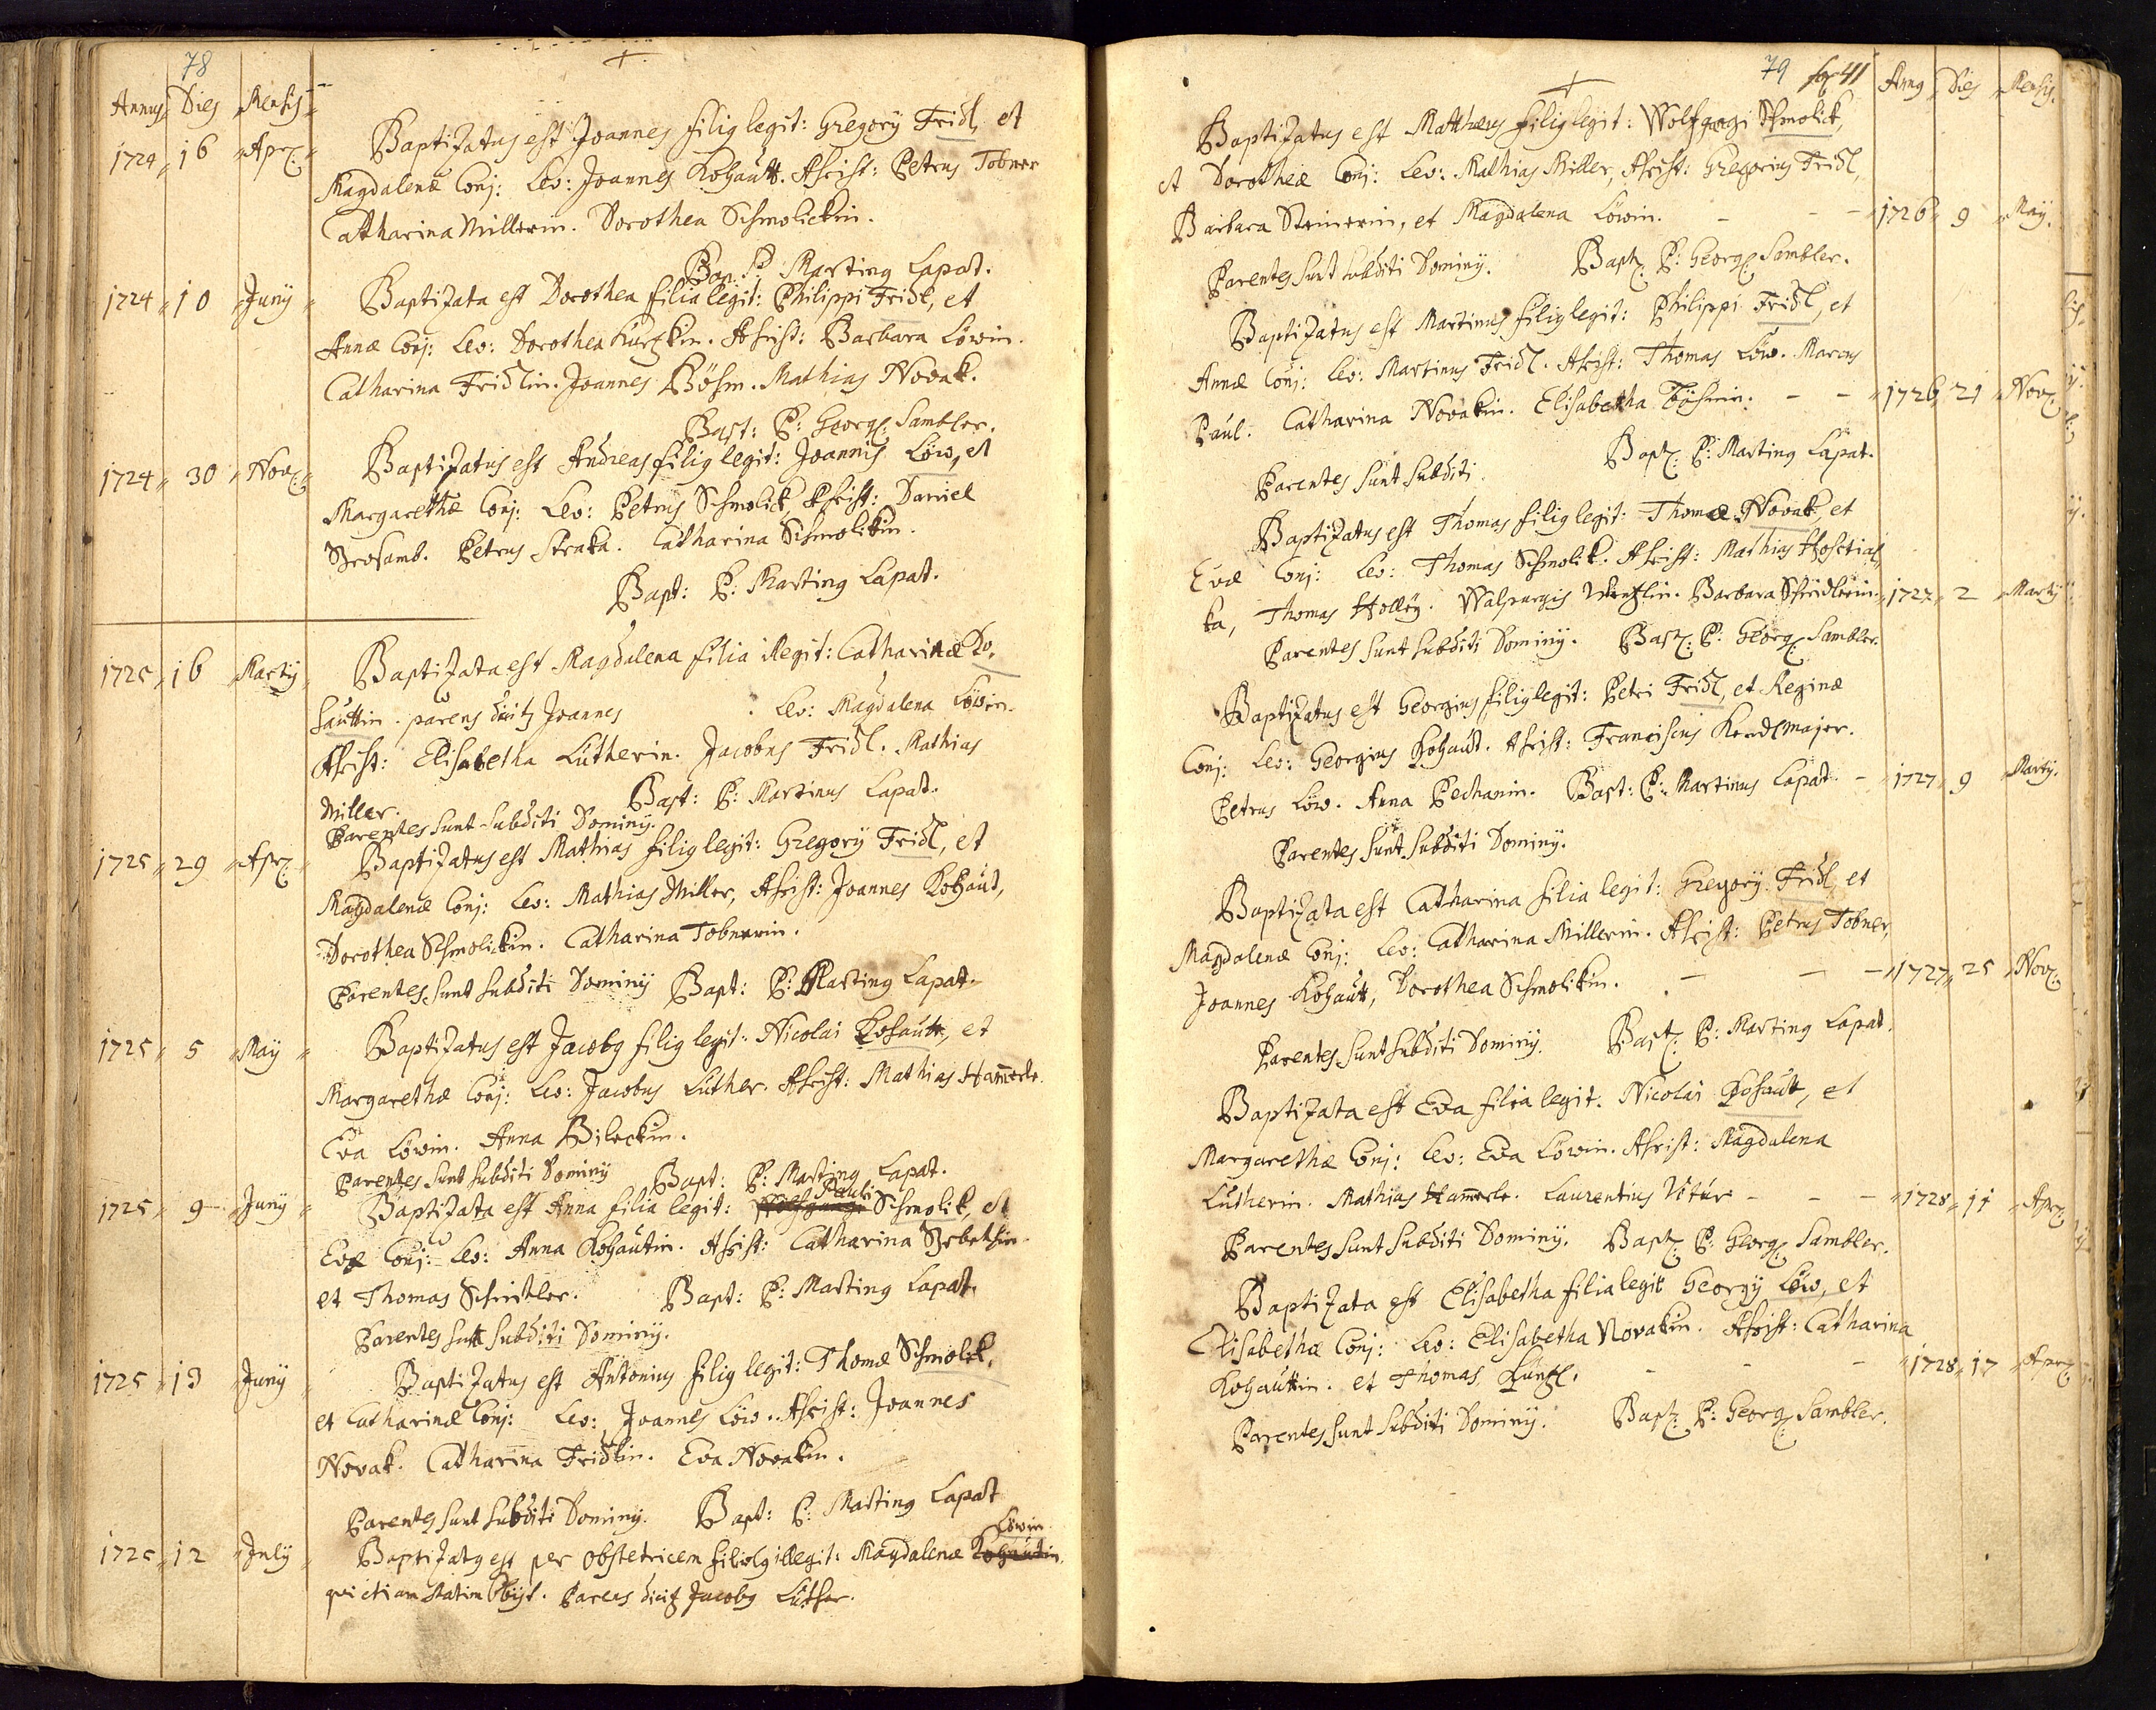 78
Annus Dies Mensis
1724 16 Apr:
Baptizatus est Joannes filig legit: Gregorÿ Fridl, et
Magdalenæ Conj: Lev: Joannes Kohautt. Assist: Petrus Tobner
Catharina Millerin. Dorothea Schmolickin.
Bap: P: Marting Lapat.
1724 10 Junÿ
Baptizata est Dorothea filia legit: Philippi Fridl, et
Annæ Conj: Lev: Dorothea Kurzkin. Assist: Barbara Löwin.
Catharina Fridlin. Joannes Böhm. Mathias Novak.
Bapt: P: Georg: Sambler.
1724 30 Nov:
Baptizatus est Andreas filig legit: Joannis Löw, et
Margarethæ Conj: Lev: Petrus Schmolick, Assist: Daniel
Petrus Straka. Catharina Schmolikin.
Bapt: P: Marting Lapat.
1725 16 Martÿ
Baptizata est Magdalena filia illegit: Catharinæ Ko,
hauttin. parens dicitz Joannes . Lev: Magdalena Löwin.
Assist: Elisabetha Lutherin. Jacobus Fridl. Mathias
Miller. Bapt: P: Martinus Lapat.
Parentes sunt subditi Dominÿ.
1725 29 Apr:
Baptizatus est Mathias filig legit: Gregorÿ Fridl, et
Magdalenæ Conj: Lev: Mathias Miller, Assist: Joannes Kohaut,
Dorothea Schmolickin. Catharina Tobnerin.
Parentes sunt subditi Dominÿ Bapt: P: Marting Lapat.
1725 5 May
Baptizatus est Jacobg filig legit: Nicolai Kohautt, et
Margarethæ Conj: Lev: Jacobus Luther. Assist: Mathias Ham̄erle.
Eva Löwin. Anna Bileckin.
Parentes sunt subditi Dominÿ Bapt: P: Marting Lapat.
1725 9 Junÿ
Pauli
Baptizata est Anna filia legit: Wolfgangi Schmolik, et
Evæ Conj: Lev: Anna Kohautin. Assist: Catharina
et Thomas Schristler. Bapt: P: Marting Lapat.
Parentes sutt subditi Dominÿ.
1725 13 Junÿ
Baptizatus est Antonius filig legit: Thomæ Schmolik,
et Catharinæ Conj: Lev: Joannes Löw. Assist: Joannes
Novak. Catharina Fridlin. Eva Novakin.
Parentes sunt subditi Dominÿ. Bapt: P: Marting Lapat
Löwin
1725 12 Julÿ
Baptizatg est per obstetricem filiolg illegit: Magdalenæ Kohautin,
qui etiam statim obÿt. Parens dicitz Jacobg Luther.
79 fol 41
Anng Dies Mensis.
Baptizatus est Mattheus filig legit: Wolfgangi Schmolick,
et Dorotheæ Conj: Lev: Mathias Miller, Assist: Gregorius Fridl,
Barbara Steinerin, et Magdalena Löwin. - - - 1726 9 Maÿ.
Parentes sunt subditi Dominÿ. Bapt: P: Georg: Sambler.
Baptizatus est Martinus filig legit: Philippi Fridl, et
Annæ Conj: Lev: Martinus Fridl. Assist: Thomas Löw. Marcus
Paul. Catharina Novakin. Elisabetha Böhmin. - - 1726 21 Nov:
Parentes sunt subditi. Bapt: P: Marting Lapat.
Baptizatus est Thomas filig legit: Thomæ Novak, et
Evæ Conj: Lev: Thomas Schmolik. Assist: Mathias Hosctial,
ka, Thomas Holleÿ. Walpurgis Wenzlin. Barbara Schridlerin. 1727 2 Martÿ
Parentes sunt subditi Dominÿ. Bapt: P: Georg: Sambler.
Baptizatus est Georgius filig legit: Petri Fridl, et Reginæ
Conj: Lev: Georgius Kohaut. Assist: Franciscus Kendlmajer.
Petrus Löw. Anna Pechanin. Bapt: P: Martinus Lapat - 1727 9 Martÿ.
Parentes sunt subditi Dominÿ.
Baptizata est Catharina filia legit: Gregorÿ Fridl, et
Magdalenæ Conj: Lev: Catharina Millerin. Assist: Petrus Tobner,
Joannes Kohautt, Dorothea Schmolikin. - - - 1727 25 Nov:
Parentes sunt subditi Dominÿ. Bapt: P: Marting Lapat.
Baptizata est Eva filia legit. Nicolai Kohautt, et
Margarethæ Conj: Lev: Eva Löwin. Assist: Magdalena
Lutherin. Mathias Ham̄erle. Laurentius Vitür - - - 1728 11 Apr:
Parentes sunt subditi Dominÿ. Bapt: P: Georg: Sambler.
Baptizata est Elisabetha filia legit Georgÿ Löw, et
Elisabethæ Conj: Lev: Elisabetha Novakin. Assist: Catharina
Kohauttin. et Thomas Künzl. - - - 1728 17 Apr:
Parentes sunt subditi Dominÿ. Bapt: P: Georg: Sambler.